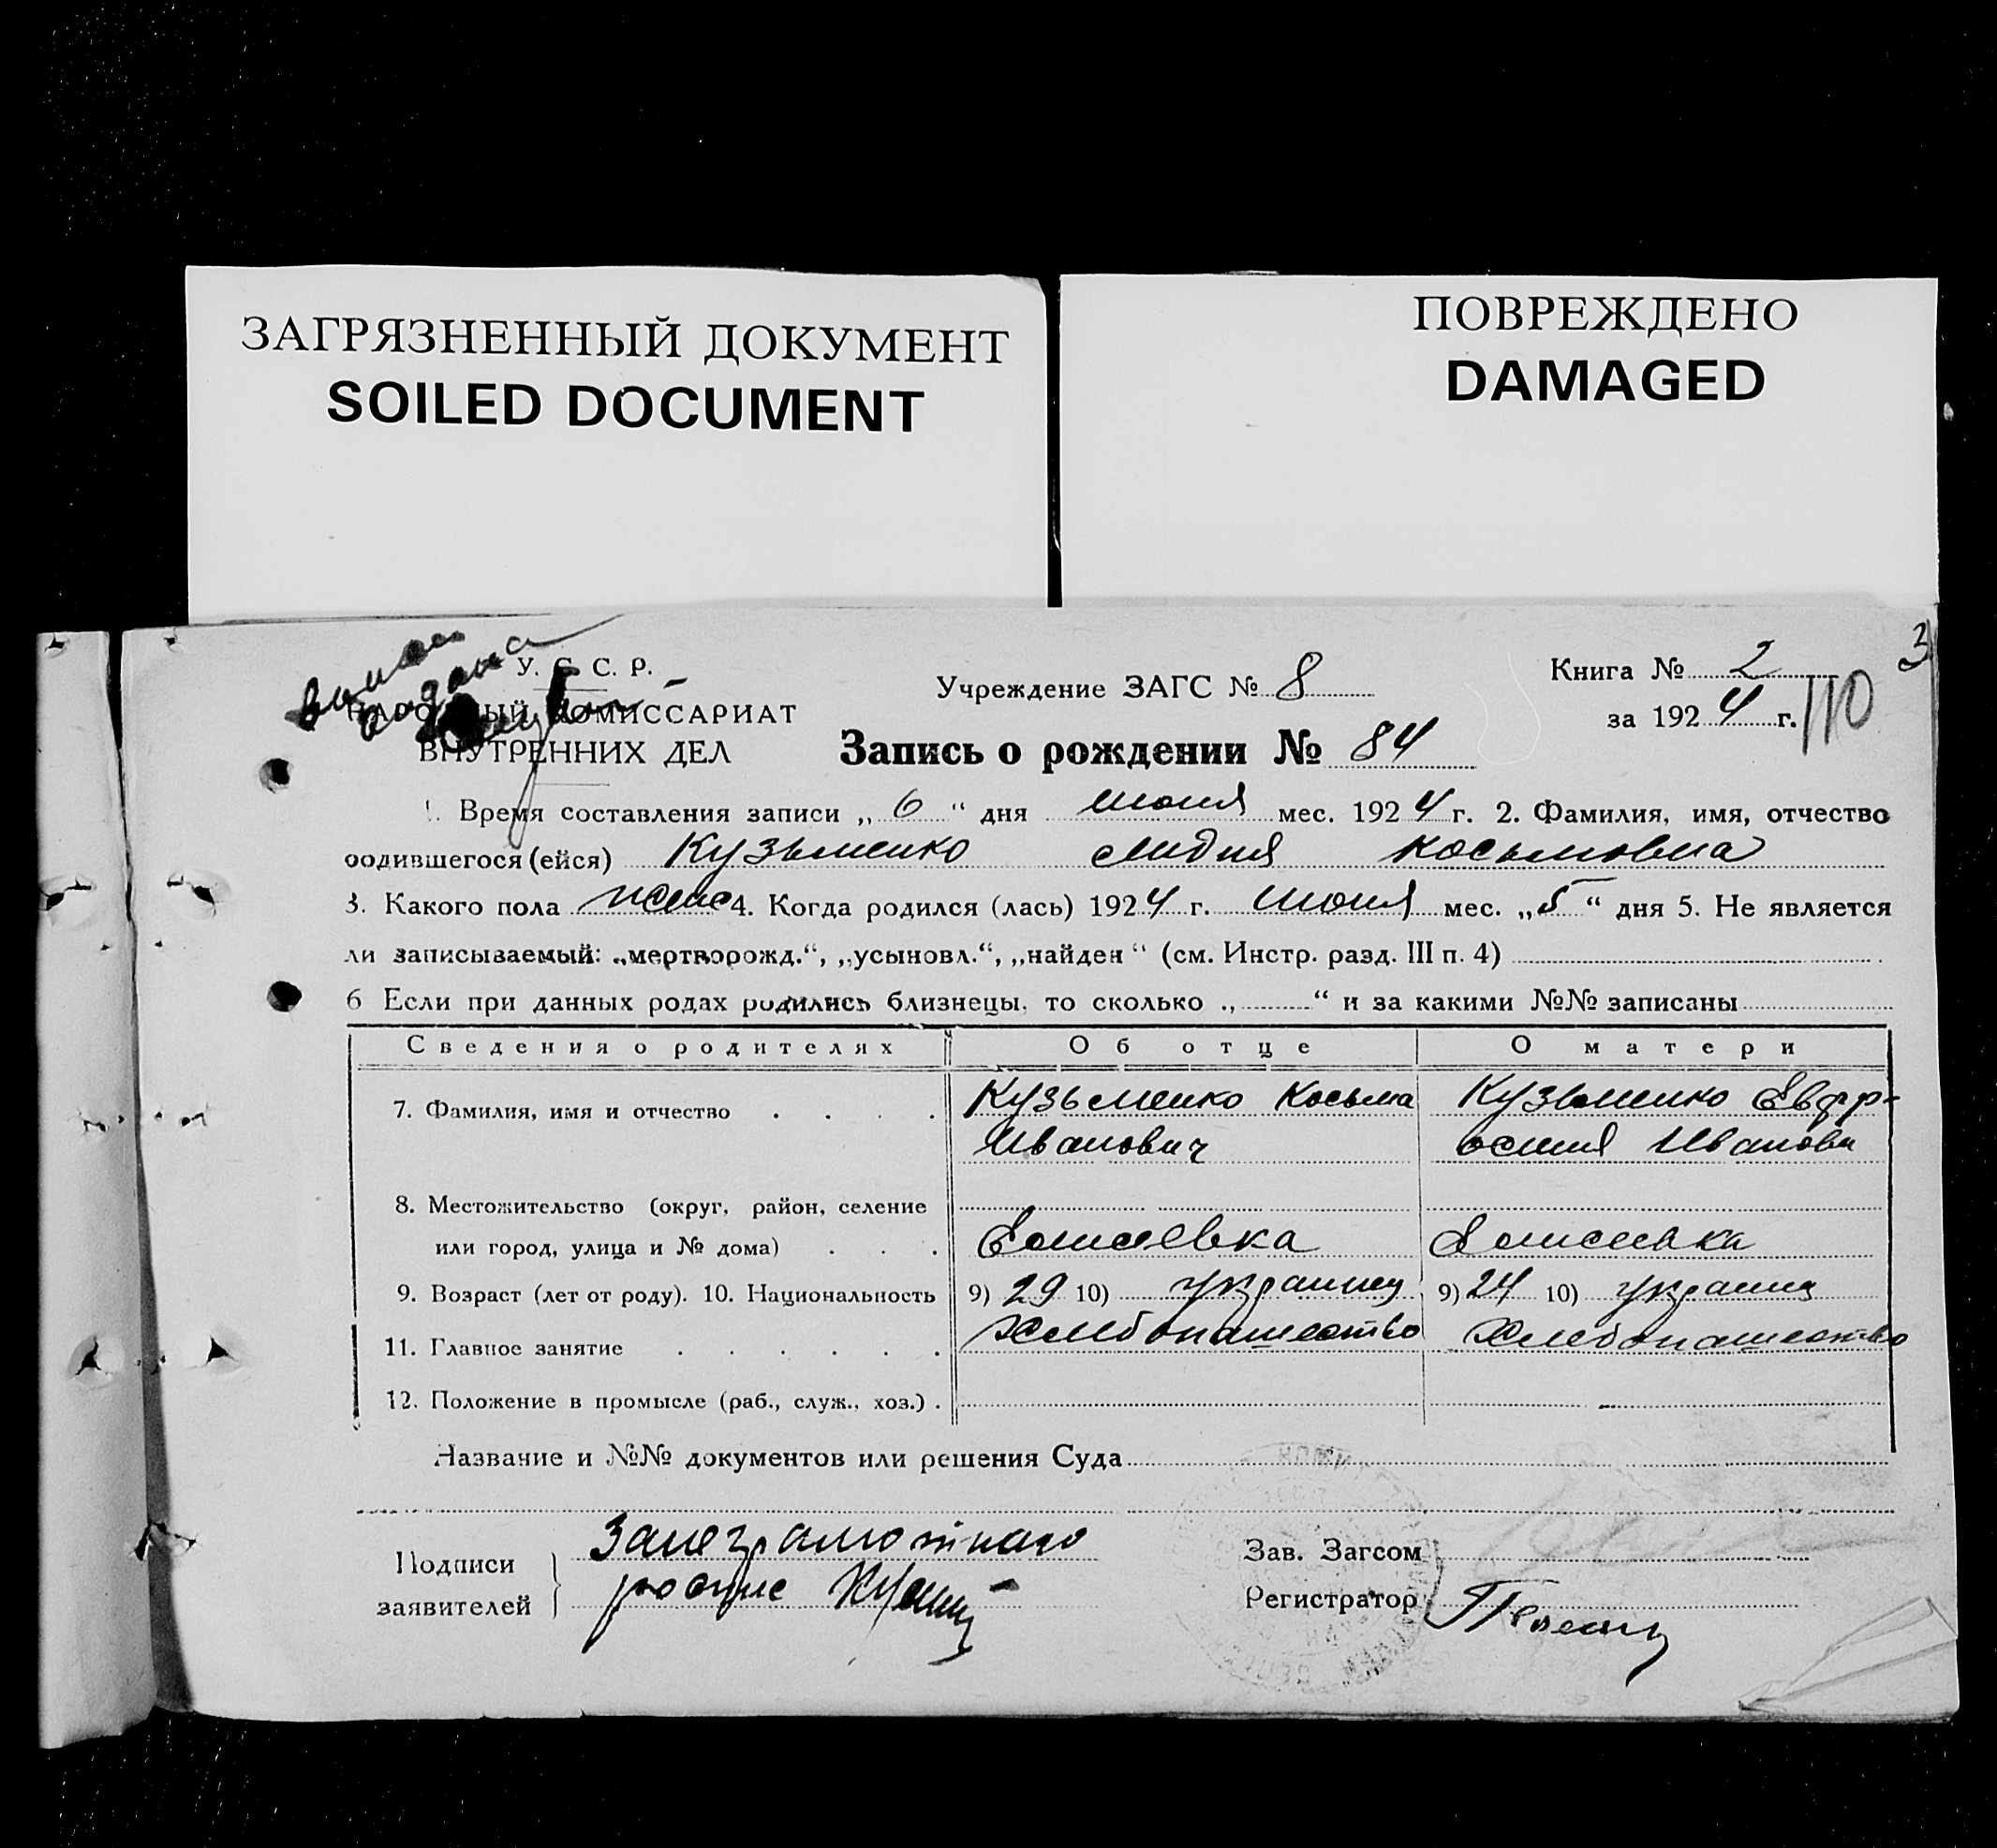 ЗАГРЯЗНЕННЫЙ ДОКУМЕНТ
SOILED DOCUMENT
ПОВРЕЖДЕНО
DAMAGED
3
У. С. С. Р.
КОМИССАРИАТ
ВНУТРЕННИХ ДЕЛ
Учреждение ЗАГС № 8
Книга № 2
за 1924 г.
110
Запись о рождении № 84
1. Время составления записи „ 6 “ дня июня мес. 1924 г. 2. Фамилия, имя, отчество
родившегося (ейся) Кузьменко Лидия Косьмовна
3. Какого пола женс 4. Когда родился (лась) 1924 г. июня мес. „5“ дня 5. Не является
ли записываемый: „мертворожд.“, „усыновл.“, „найден“ (см. Инстр. разд. III п. 4)
6 Если при данных родах родились близнецы, то сколько „ “ и за какими №№ записаны
Сведения о родителях Об отце О матери
7. Фамилия, имя и отчество Кузьменко Косьма Кузьменко Евфр-
Иванович осиния Иванови
8. Местожительство (округ, район, селение
или город, улица и № дома) Елисеевка Елисеевка
9. Возраст (лет от роду). 10. Национальность 9) 29 10) украинец 9) 24 10) украинц
11. Главное занятие Хлебопашество Хлебопашество
12. Положение в промысле (раб., служ., хоз.)
Название и №№ документов или решения Суда
Подписи
заявителей
За неграмотнаго
роспис
Зав. Загсом
Регистратор